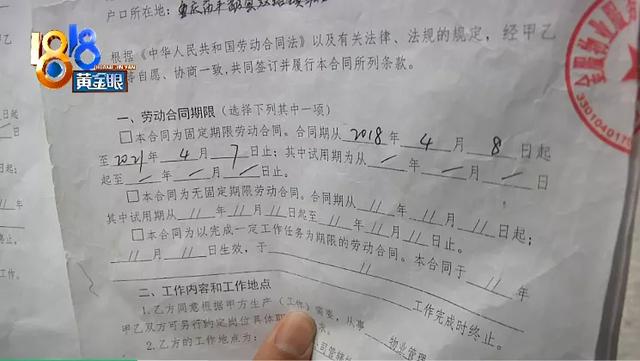 户口所在地：重庆市丰都县
1818
黄金眼
根据《中华人民共和国劳动合同法》以及有关法律、法规的规定，经甲乙
等自愿、协商一致，共同签订并履行本合同所列条款。
一、劳动合同期限（选择下列其中一项）
□本合同为固定期限劳动合同。合同期从 2018 年 4 月 8 日起
至 2021 年 4 月 7 日止；其中试用期为从 / 年 / 月 / 日
起至 / 年 / 月 / 日止。
□本合同为无固定期限劳动合同。合同期从 // 年 // 月 // 日起；
其中试用期从 // 年 // 月 // 日起至 // 年 // 月 // 日止。
□本合同为以完成一定工作任务为期限的劳动合同。本合同于 // 年
// 月 // 日生效，于 // 工作完成时终止。
二、工作内容和工作地点
1.乙方同意根据甲方生产（工作）需要，从事 物业管理
甲乙双方可另行约定岗位具体
2.乙方的工作地点为：
物业服
33010401
日起
日
止。
工作。